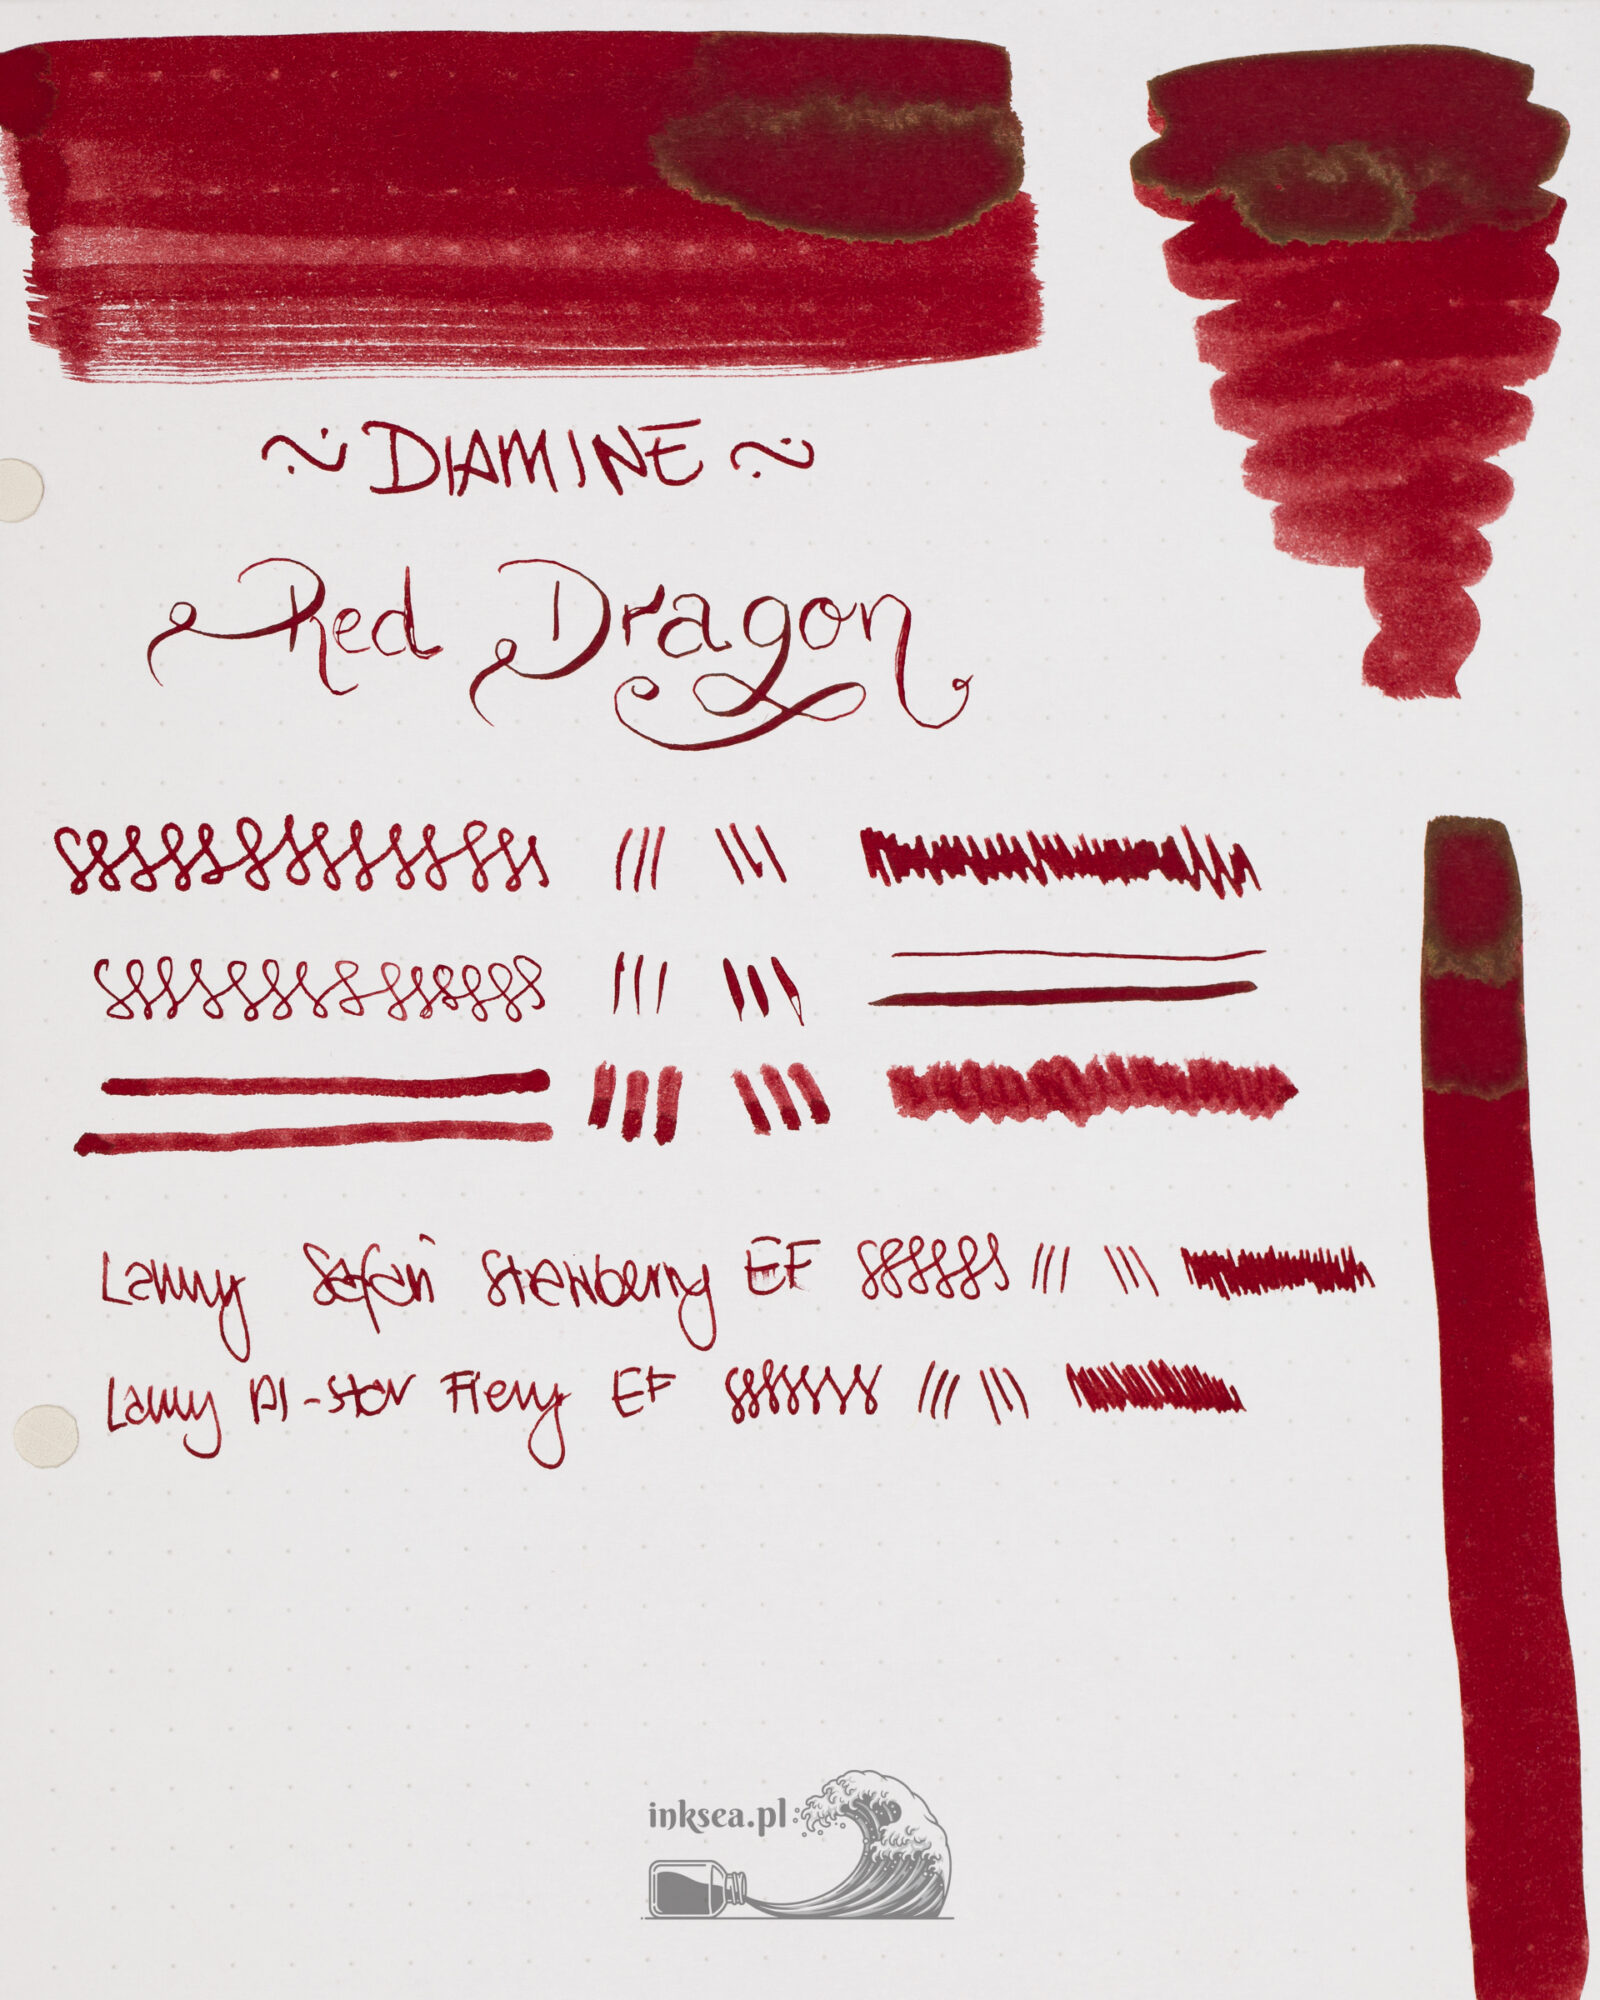 ~ DIAMINE ~
Red Dragon
Lamy Safari Strawberry EF
Lamy Al-star Fiery EF
inksea.pl